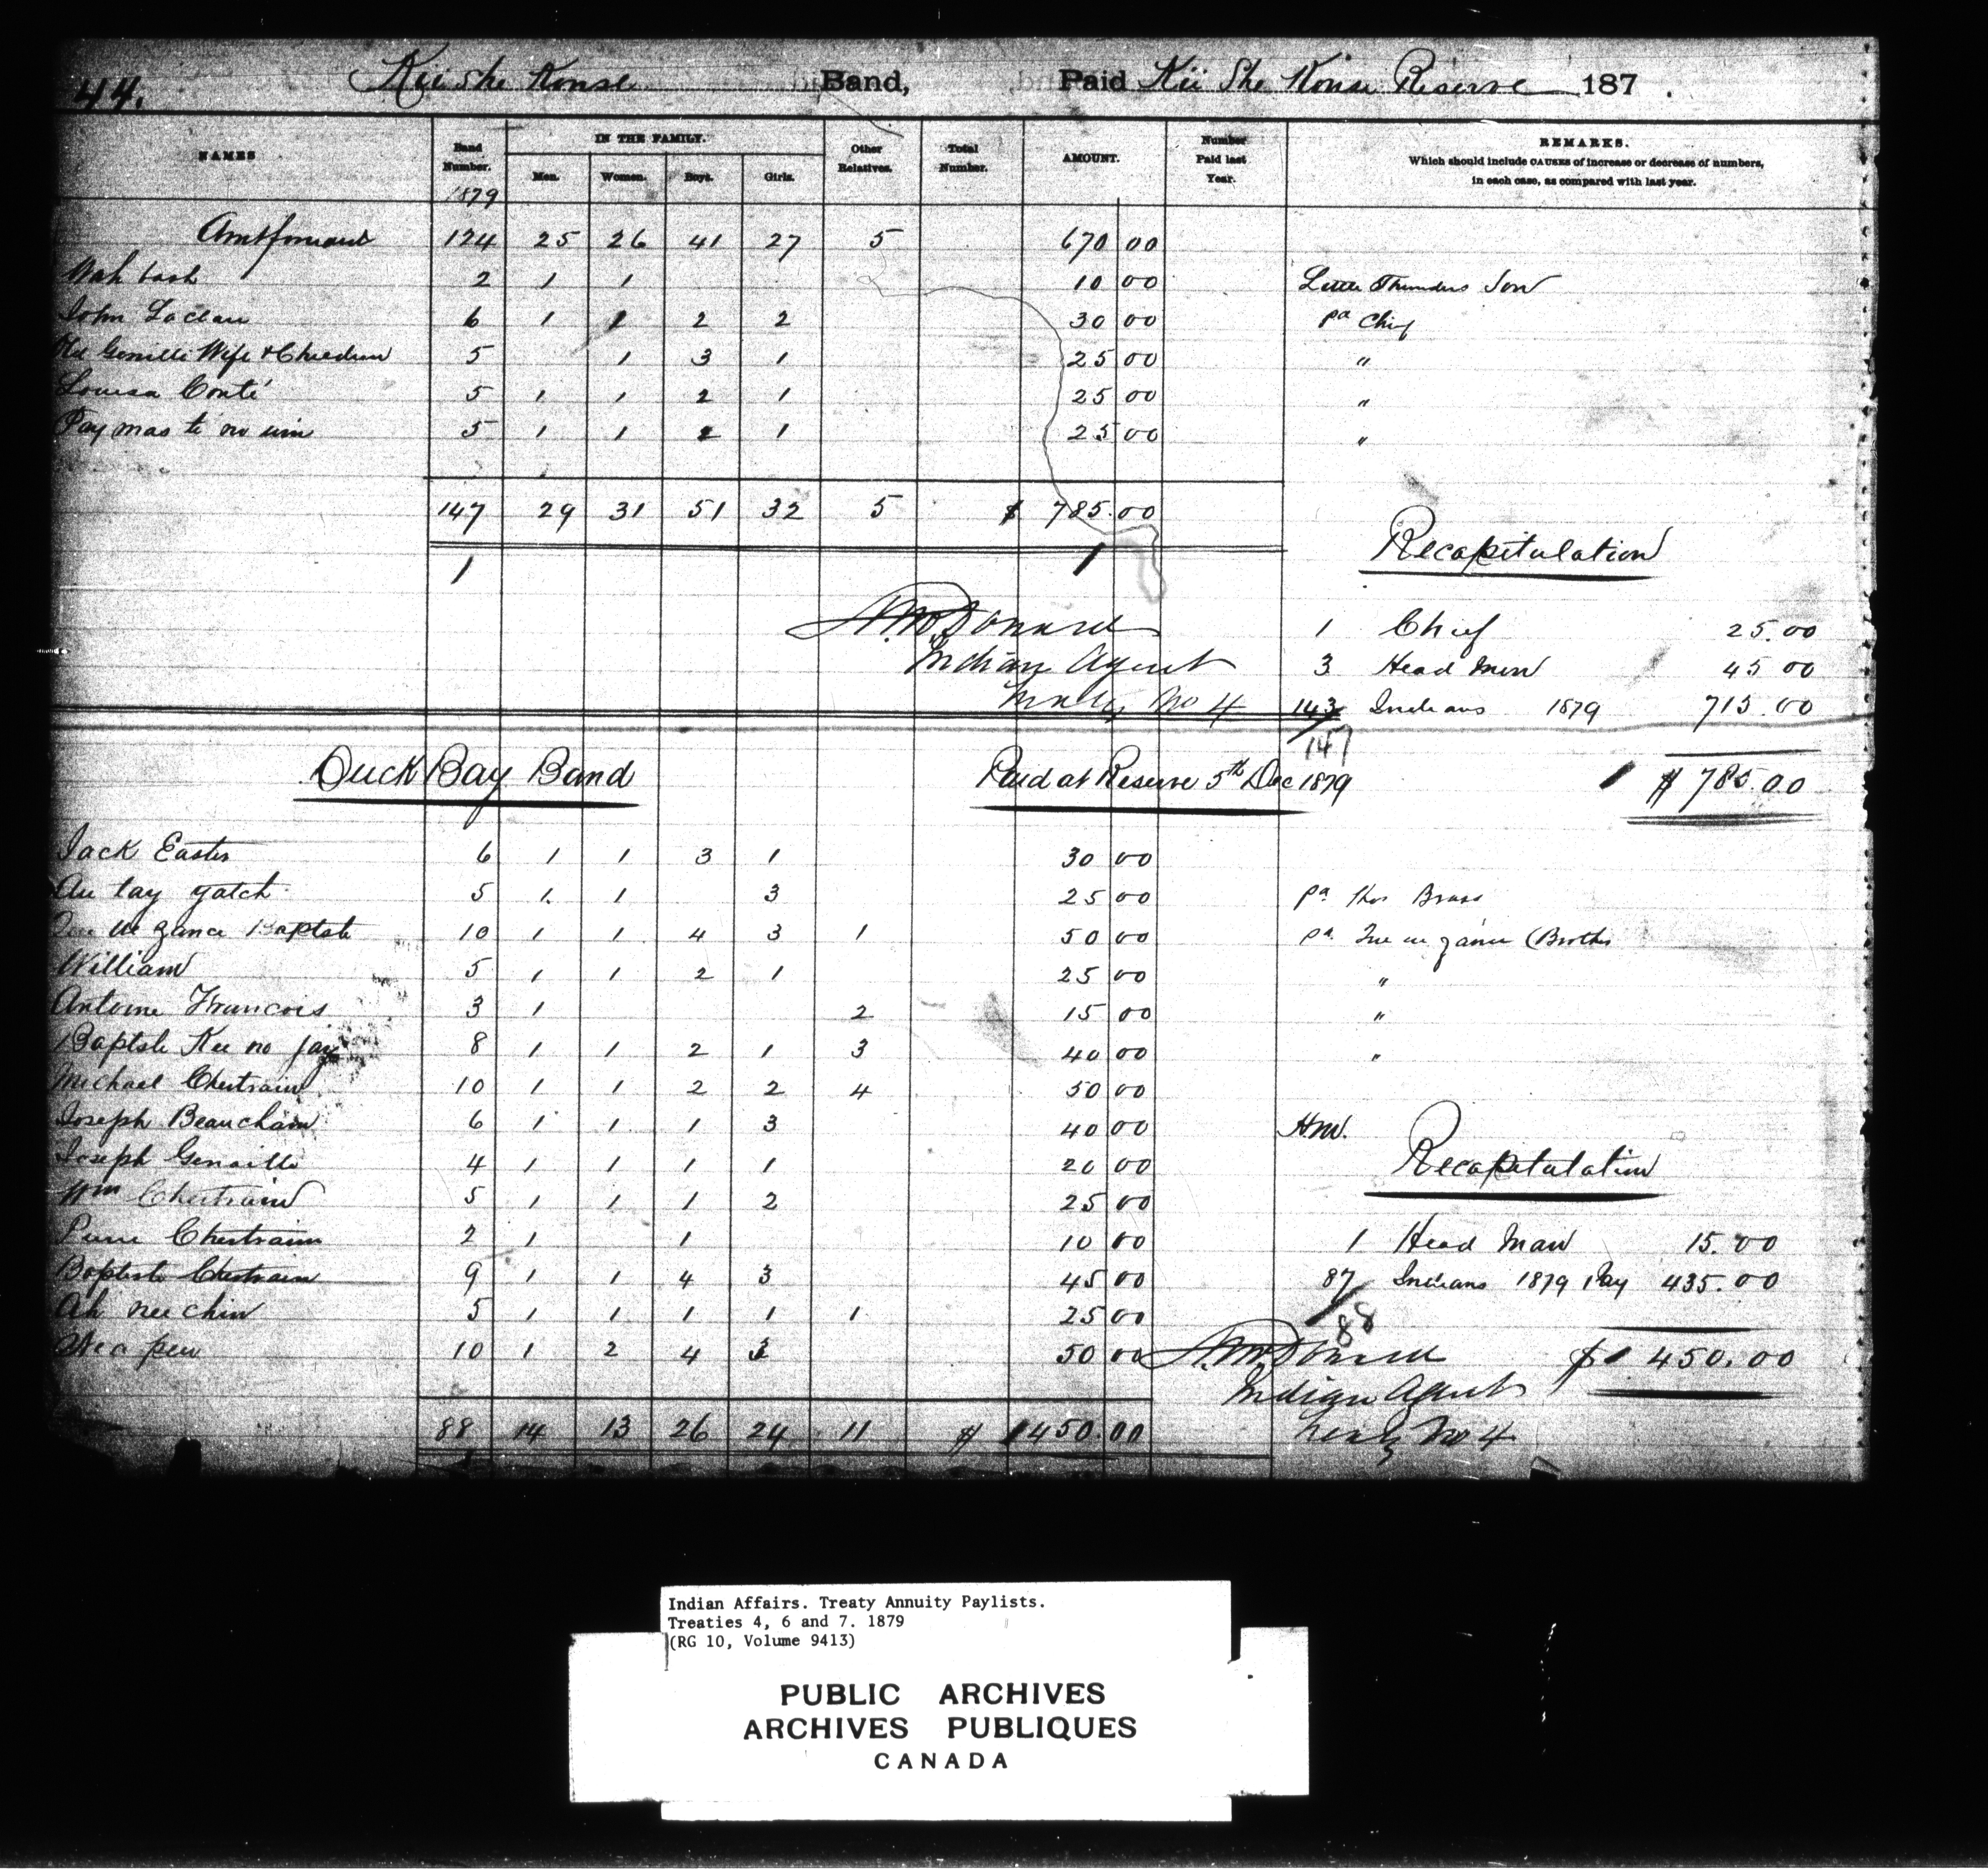 44. Kii She Konse Band, Paid Kii She Konse Reserve 187 .
NAMES Band Number. IN THE FAMILY. Men. Women. Boys. Girls. Other Relatives. Total Number. AMOUNT. Number Paid last Year. REMARKS.
Which should include CAUSES of increase or decrease of numbers,
in each case, as compared with last year.
1879
Amt forward 124 25 26 41 27 5 670 00
Wah bash 2 1 1 10 00 Little Thunders Son
John Laclair 6 1 1 2 2 30 00 pa Chief
Genille Wife & Children 5 1 3 1 25 00 "
Louisa Conté 5 1 1 2 1 25 00 "
Pay mas te no win 5 1 1 2 1 25 00 "
147 29 31 51 32 5 $ 785.00
1 1
Recapitulation
1 Chief 25.00
3 Head Men 45.00
143 Indians 1879 715.00
147
$ 785.00
A. McDonald
Indian Agent
Treaty No 4
Duck Bay Band Paid at Reserve 5th Dec 1879
Jack Easter 6 1 1 3 1 30 00
Au tay gatch 5 1 1 3 25 00 pa Thos Brass
gance Baptste 10 1 1 4 3 1 50 00 pa (Brother
William 5 1 1 2 1 25 00 "
Antoine Francois 3 1 2 15 00 "
Baptste Kee no jay 8 1 1 2 1 3 40 00 "
Michael Chertrain 10 1 1 2 2 4 50 00
Joseph Beauchain 6 1 1 1 3 40 00 H.M.
Joseph Genaille 4 1 1 1 1 20 00
Wm Chertrain 5 1 1 1 2 25 00
Pierre Chertrain 2 1 1 10 00
Baptiste Chertrain 9 1 1 4 3 45 00
Ah nee chin 5 1 1 1 1 1 25 00
pew 10 1 2 4 3 50 00
88 14 13 26 24 11 $ 450.00
Recapitulation
1 Head Man 15.00
87 Indians 1879 Pay 435.00
88
$ 450.00
A. McDonald
Indian Agent
Treaty No 4
Indian Affairs. Treaty Annuity Paylists.
Treaties 4, 6 and 7. 1879
(RG 10, Volume 9413)
PUBLIC ARCHIVES
ARCHIVES PUBLIQUES
CANADA